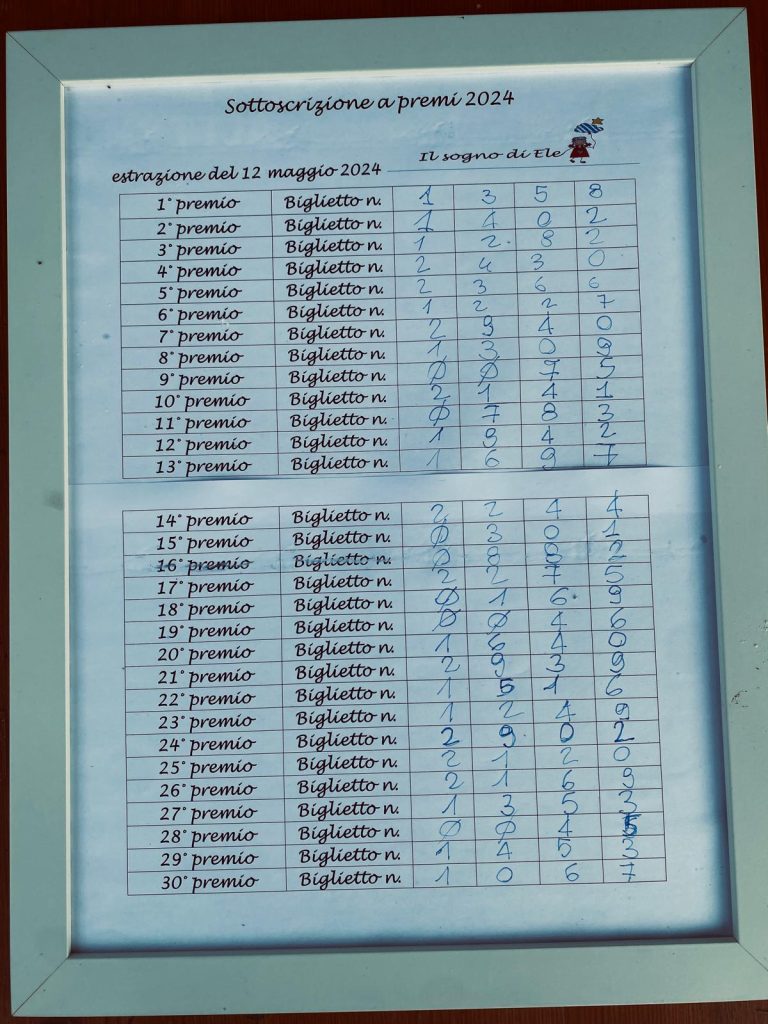 Sottoscrizione a premi 2024
Il sogno di Ele
estrazione del 12 maggio 2024
1° premio Biglietto n. 1 3 5 8
2° premio Biglietto n. 1 4 0 2
3° premio Biglietto n. 1 2 8 2
4° premio Biglietto n. 2 4 3 0
5° premio Biglietto n. 2 3 6 6
6° premio Biglietto n. 1 2 2 7
7° premio Biglietto n. 2 9 4 0
8° premio Biglietto n. 1 3 0 9
9° premio Biglietto n. 0 0 7 5
10° premio Biglietto n. 2 1 4 1
11° premio Biglietto n. 0 7 8 3
12° premio Biglietto n. 1 9 4 2
13° premio Biglietto n. 1 6 9 7
14° premio Biglietto n. 2 2 4 4
15° premio Biglietto n. 0 3 0 1
16° premio Biglietto n. 0 8 8 2
17° premio Biglietto n. 2 2 7 5
18° premio Biglietto n. 0 1 6 9
19° premio Biglietto n. 0 0 4 6
20° premio Biglietto n. 1 6 4 0
21° premio Biglietto n. 2 9 3 9
22° premio Biglietto n. 1 5 1 6
23° premio Biglietto n. 1 2 4 9
24° premio Biglietto n. 2 9 0 2
25° premio Biglietto n. 2 1 2 0
26° premio Biglietto n. 2 1 6 9
27° premio Biglietto n. 1 3 5 3
28° premio Biglietto n. 0 0 4 5
29° premio Biglietto n. 1 4 5 3
30° premio Biglietto n. 1 0 6 7